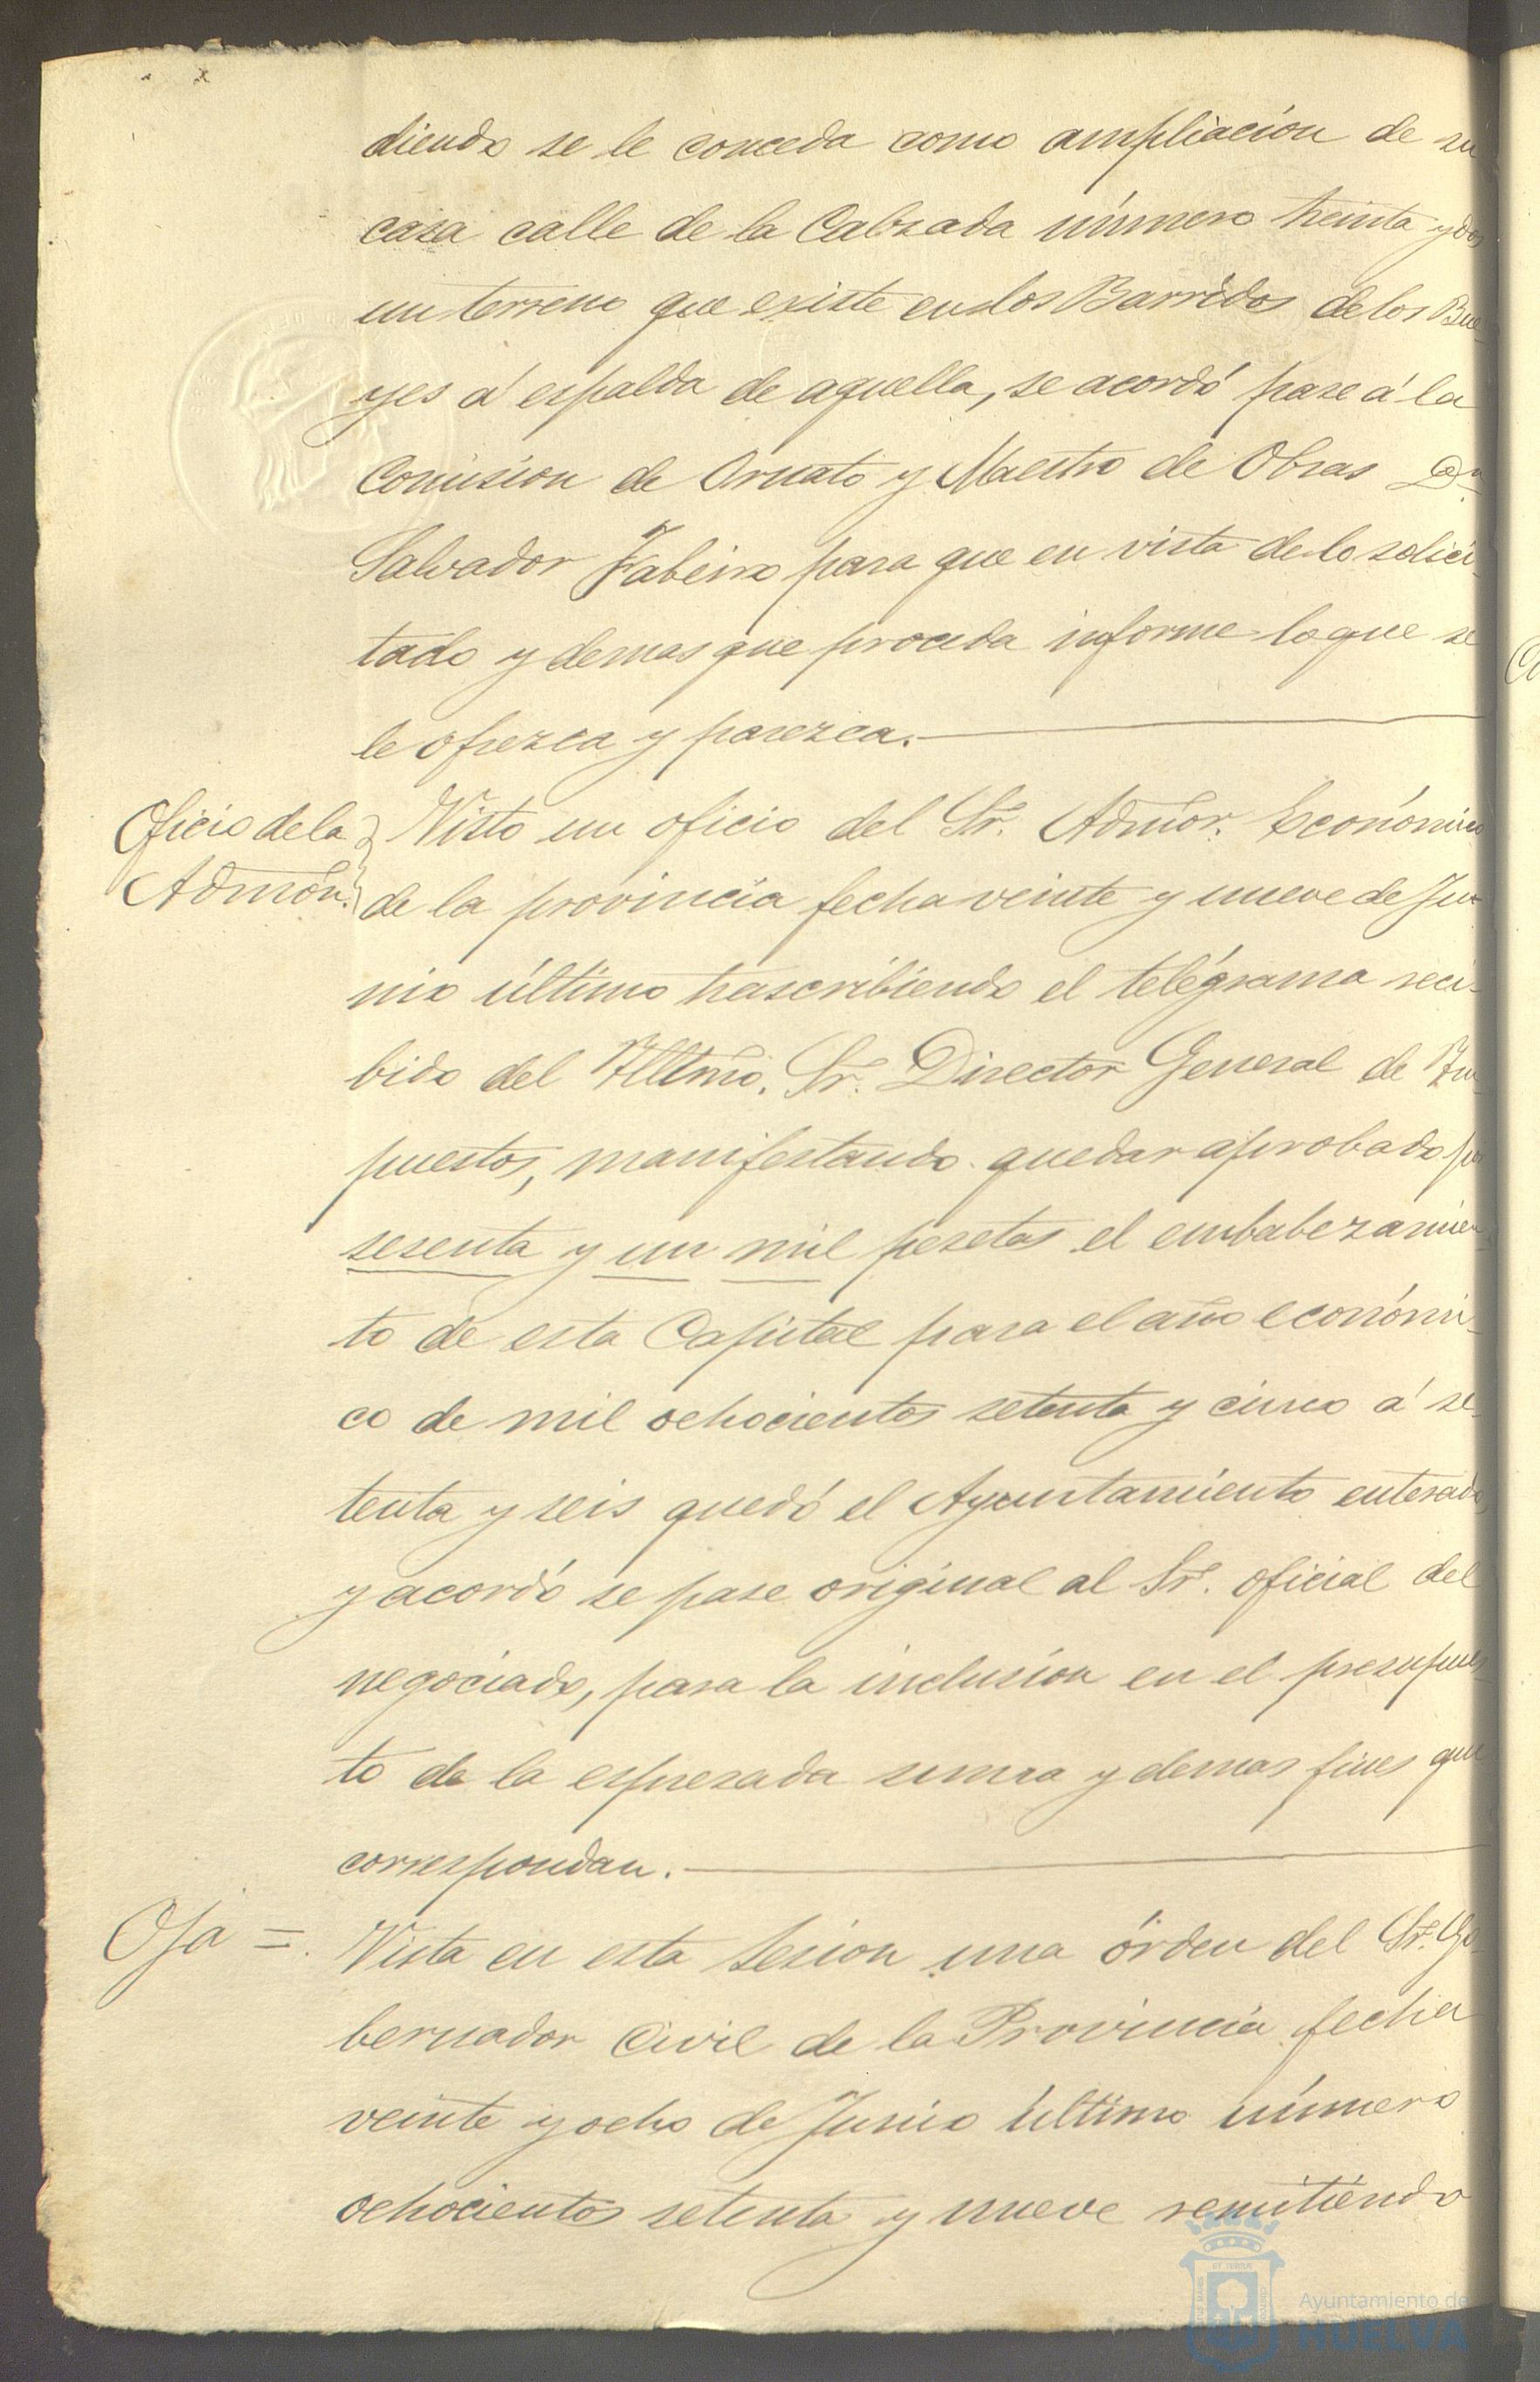 diendo se le conceda como ampliación de su
casa calle de la Calzada número treinta y dos
un terreno que existe en los Barridos de los Bue-
yes á espalda de aquella, se acordó pase á la
Comision de Ornato y Maestro de Obras Dn
Salvador para que en vista de lo solici-
tado y demas que proceda informe lo que se
le ofrezca y parezca.
Oficio de la
Admón.
Visto un oficio del Sr. Admor. Económico
de la provincia fecha veinte y nueve de Ju-
nio último trascribiendo el telégrama reci-
bido del Illtmo. Sr. Director General de Im-
puestos, manifestando quedar aprobado por
sesenta y un mil pesetas el embabezamien-
to de esta Capital para el año económi-
co de mil ochocientos setenta y cinco á se-
tenta y seis quedó el Ayuntamiento enterado,
y acordó se pase original al Sr. oficial del
negociado, para la inclusion en el presupues-
to de la espresada suma y demas fines que
correspondan.
Vista en esta Sesion una órden del Sr. Go-
bernador Civil de la Provincia fecha
veinte y ocho de Junio último número
ochocientos setenta y nueve remitiendo
Ayuntamiento de
HUELVA